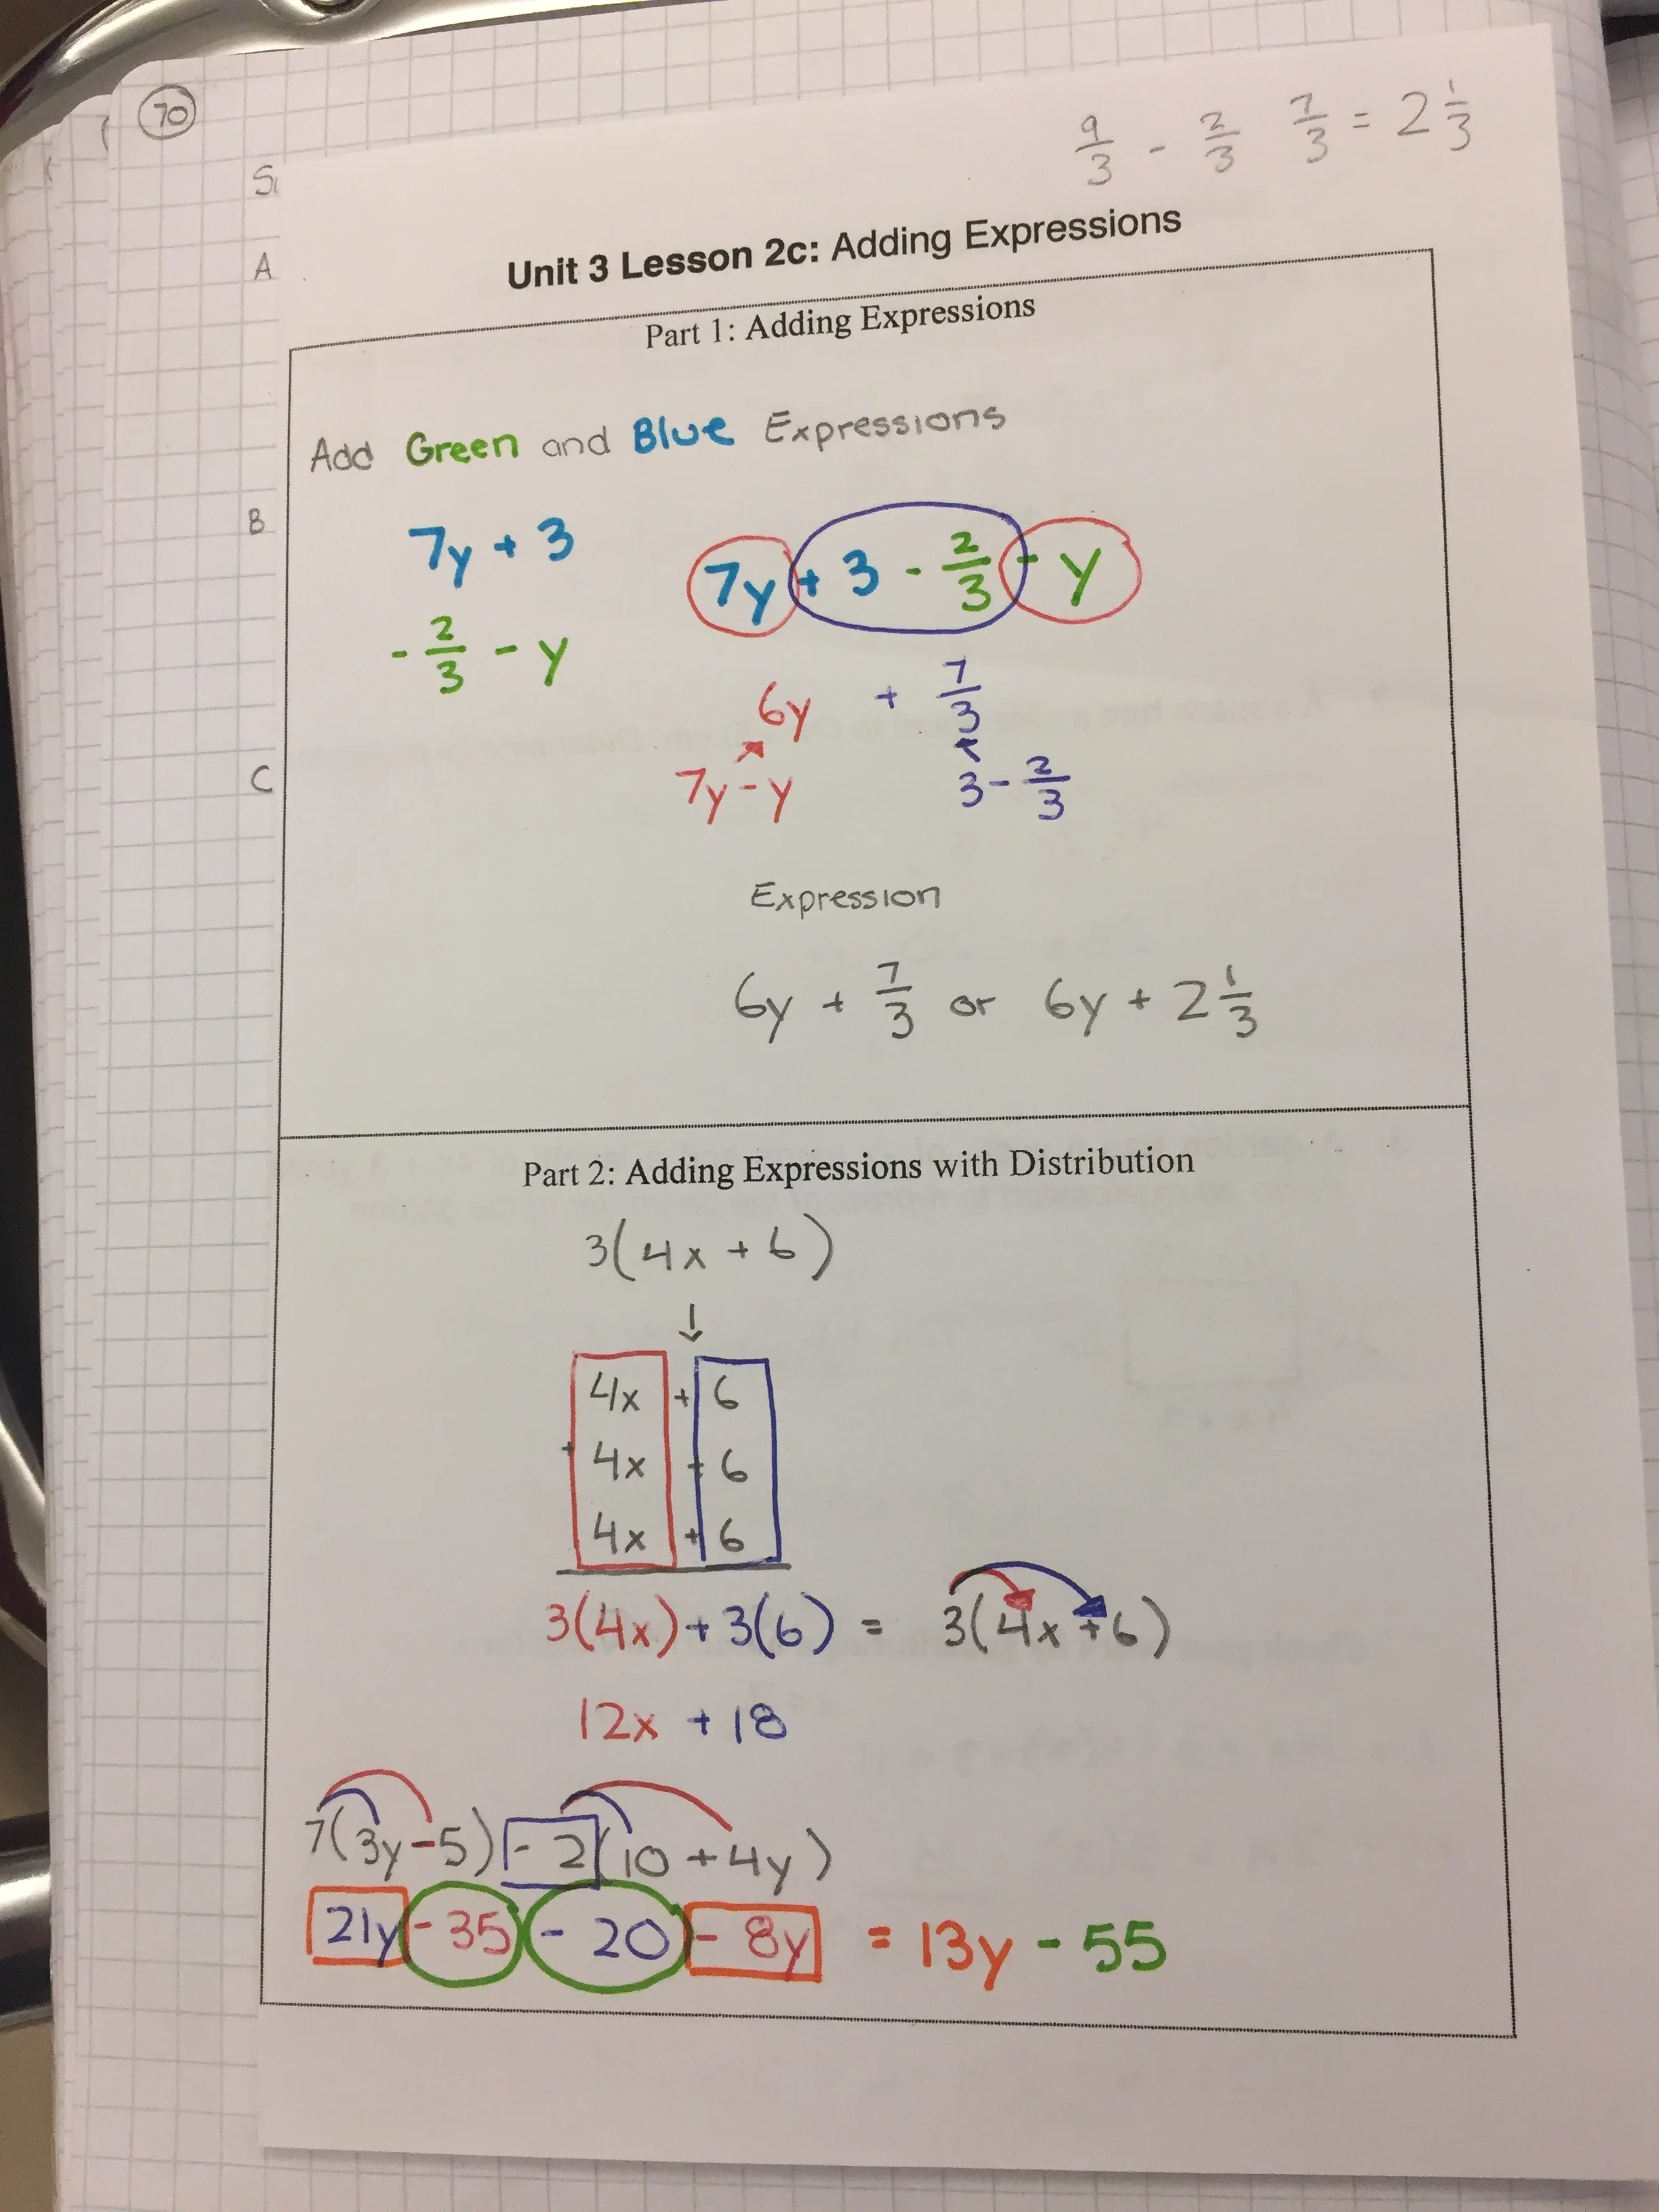 70
9/3 - 2/3 7/3 = 2 1/3
A
Unit 3 Lesson 2c: Adding Expressions
Part 1: Adding Expressions
Add Green and Blue Expressions
B
7y + 3
7y + 3 - 2/3 - y
- 2/3 - y
6y + 7/3
C
7y - y
3 - 2/3
Expression
6y + 7/3 or 6y + 2 1/3
Part 2: Adding Expressions with Distribution
3(4x + 6)
↓
4x + 6
+ 4x + 6
4x + 6
3(4x) + 3(6) = 3(4x + 6)
12x + 18
7(3y - 5) - 2(10 + 4y)
21y - 35 - 20 - 8y = 13y - 55